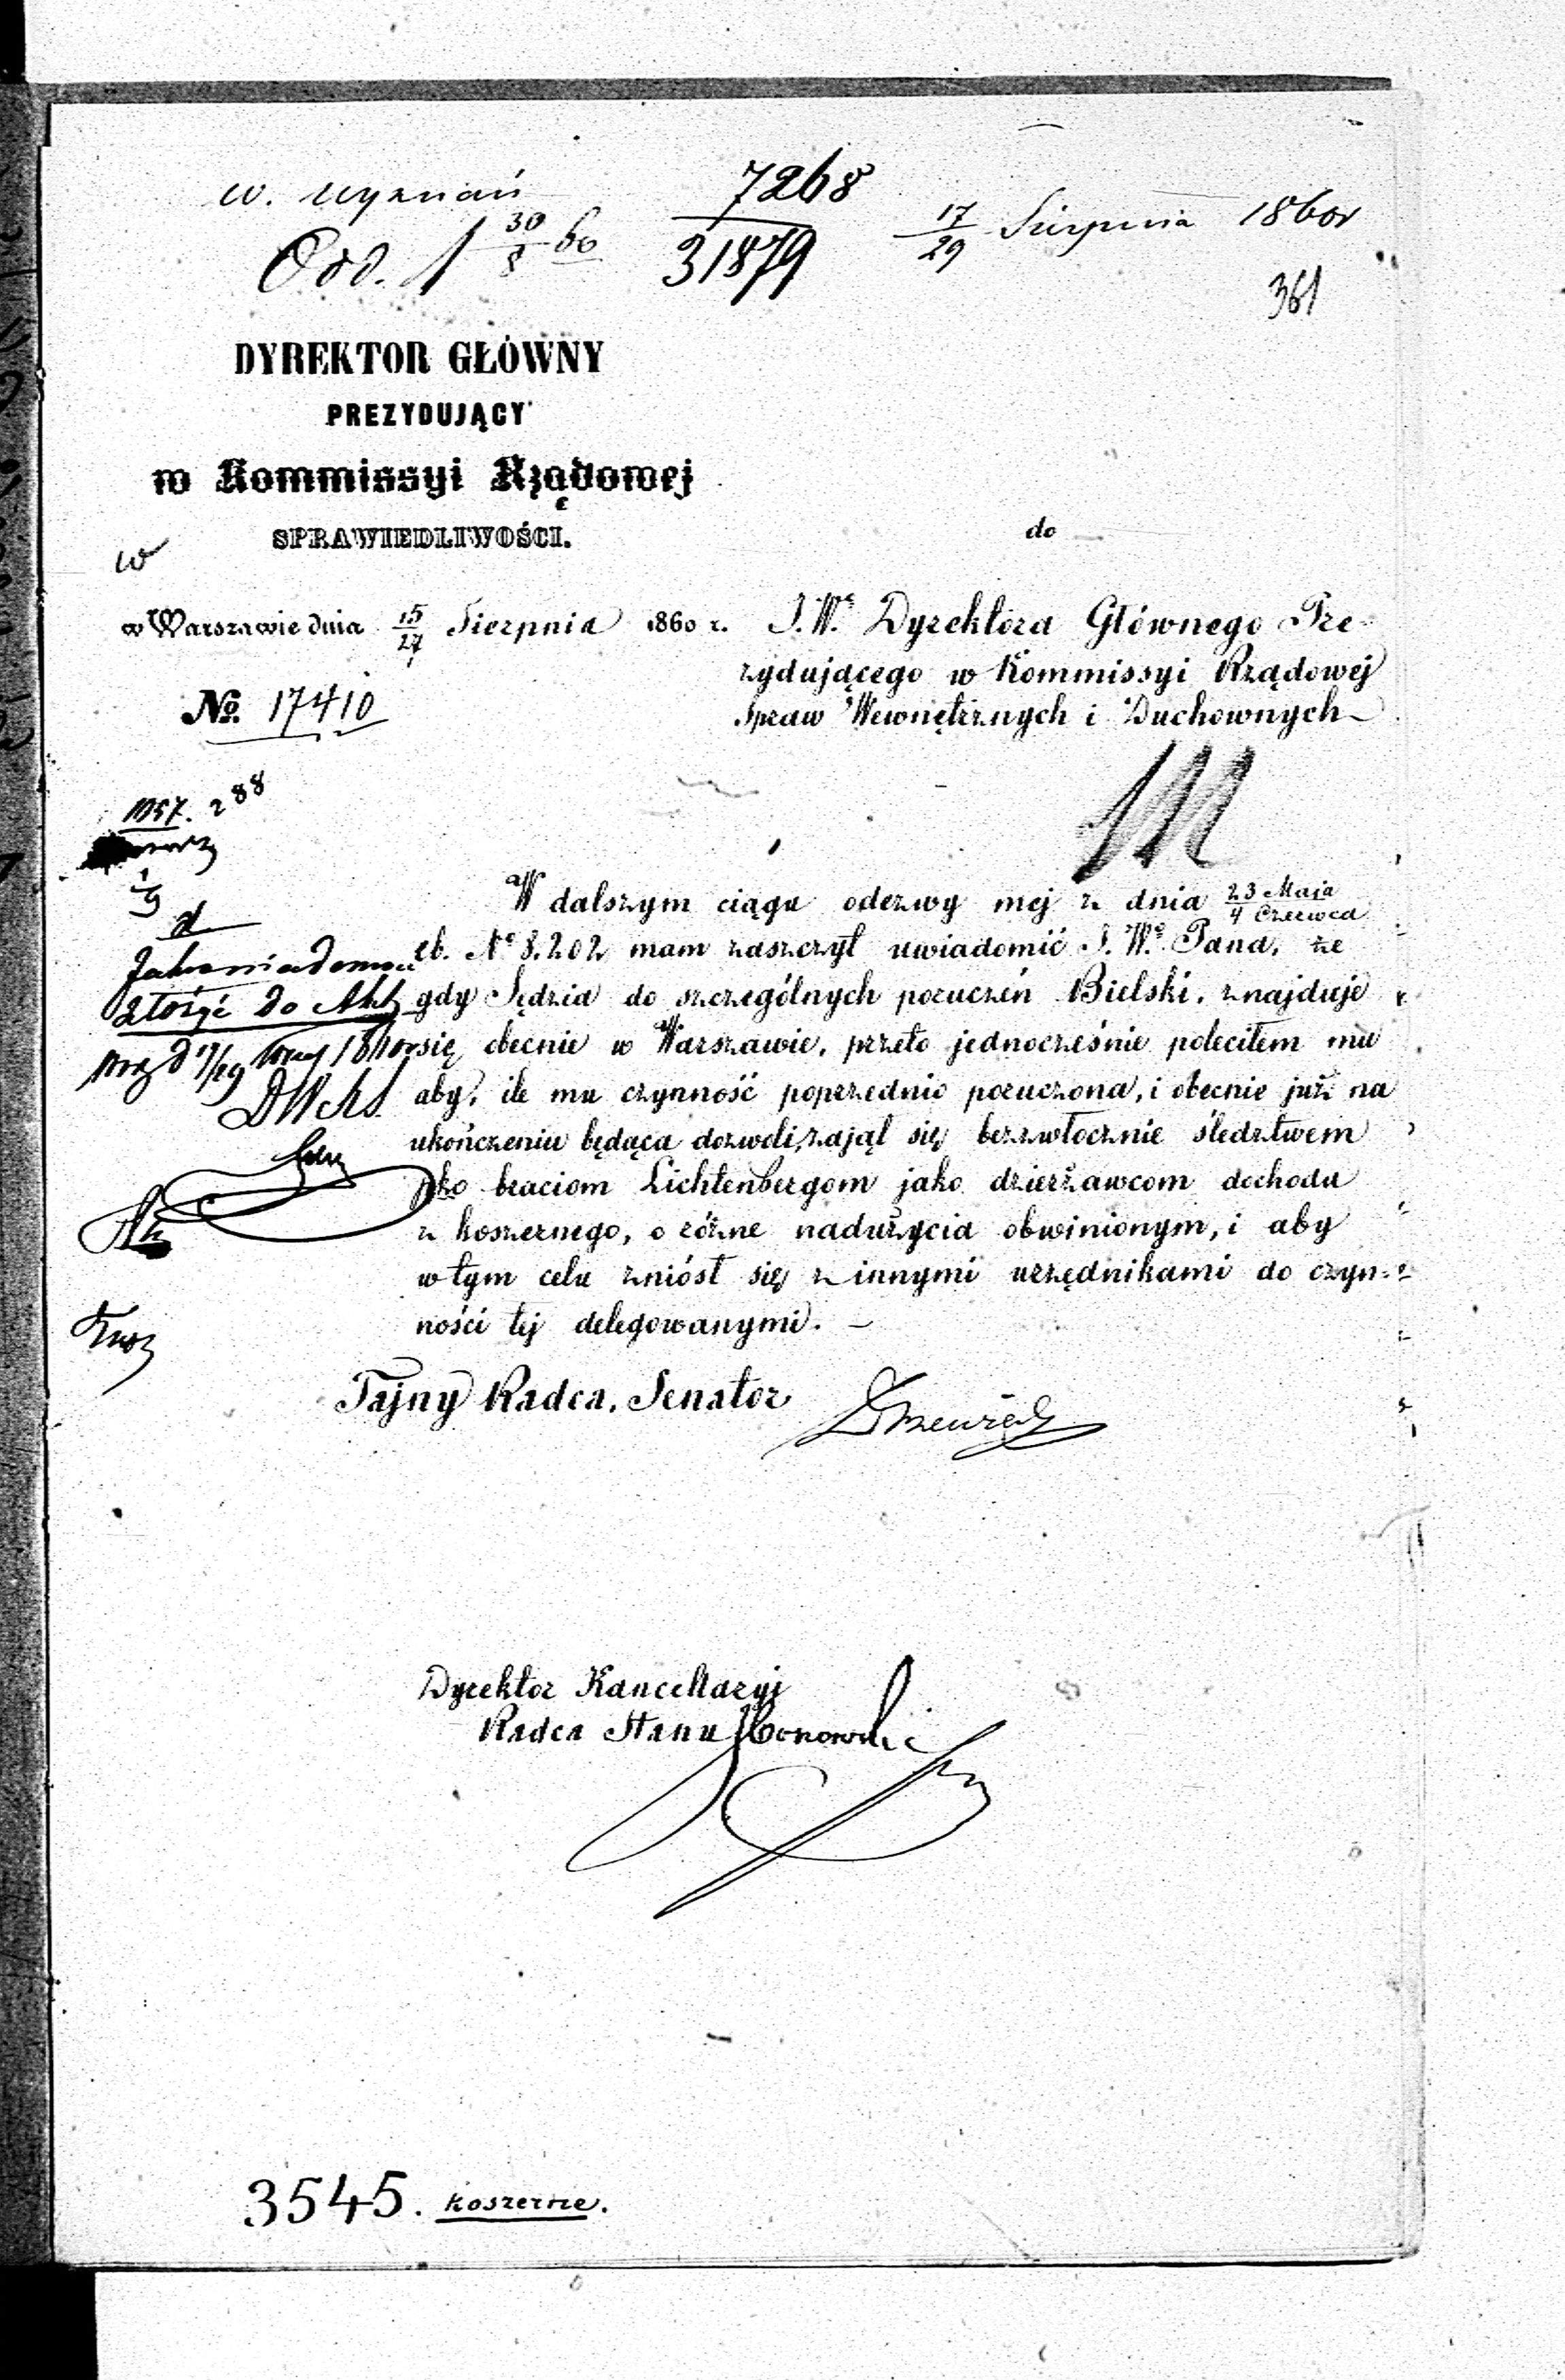 w. wyznań
7268
31879
17/29 Sierpnia 1860r
Odd. 1 30/8 60
361
DYREKTOR GŁÓWNY
PREZYDUJĄCY
w Kommissyi Rządowej
SPRAWIEDLIWOŚCI.
do
w
w Warszawie dnia 15/27 Sierpnia 1860 r.
J.W.º Dyrektora Głównego Pre-
zydującego w Kommissyi Rządowej
Spraw Wewnętrznych i Duchownych
No. 17410
288
W dalszym ciągu odezwy mej z dnia 23 Maja / 4 Czerwca
rb. Nº 8.202 mam zaszczyt uwiadomić J.W.º Pana, że
gdy Sędzia do szczególnych poruczeń Bielski, znajduje
się obecnie w Warszawie, przeto jednocześnie poleciłem mu
aby, ile mu czynność poprzednio poruczona, i obecnie już na
ukończeniu będąca dozwoli, zajął się bezzwłocznie śledztwem
pko braciom Lichtenbergom jako dzierżawcom dochodu
z koszernego, o różne nadużycia obwinionym, i aby
w tym celu zniósł się z innymi urzędnikami do czyn-
ności tej delegowanymi.
złożyć do Akt
Tajny Radca, Senator
Dyrektor Kancellaryi
Radca Stanu
3545. koszerne.